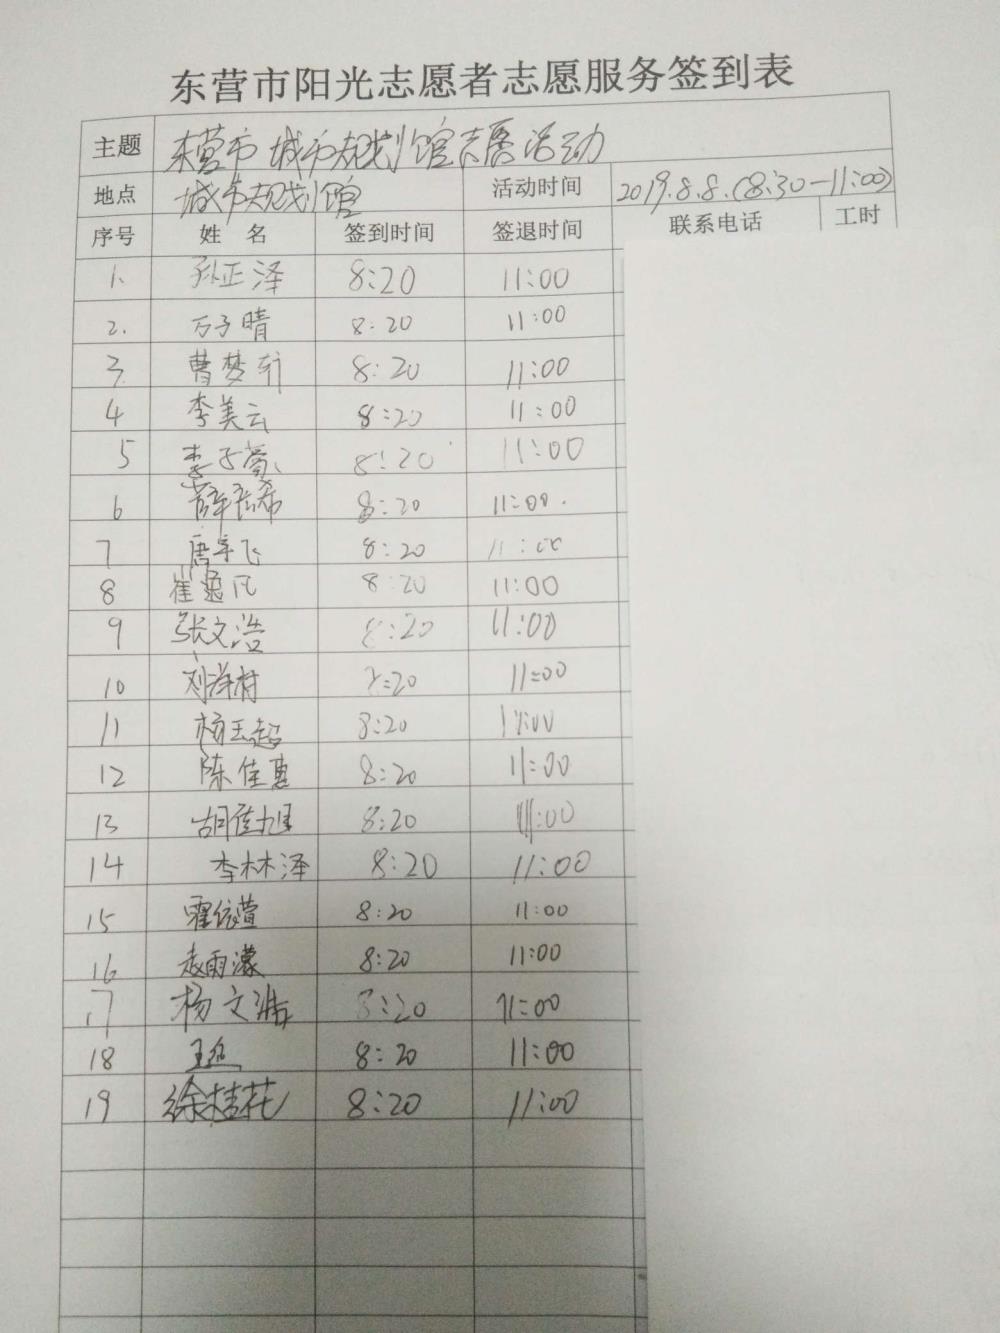 东营市阳光志愿者志愿服务签到表
主题 东营市城市规划馆志愿活动
地点 城市规划馆 活动时间 2019.8.8.(8:30-11:00)
序号 姓名 签到时间 签退时间 联系电话 工时
1. 孙正泽 8:20 11:00
2. 万子晴 8:20 11:00
3. 曹梦轩 8:20 11:00
4 李美云 8:20 11:00
5 李子萱 8:20 11:00
6 8:20 11:00.
7 唐宇飞 8:20 11:00
8 崔逸凡 8:20 11:00
9 张文浩 8:20 11:00
10 刘洋村 8:20 11:00
11 杨玉超 8:20 11:00
12 陈佳惠 8:20 11:00
13 胡佳旭 8:20 11:00
14 李林泽 8:20 11:00
15 霍依萱 8:20 11:00
16 赵雨濛 8:20 11:00
17 杨文浩 8:20 11:00
18 8:20 11:00
19 徐桂花 8:20 11:00